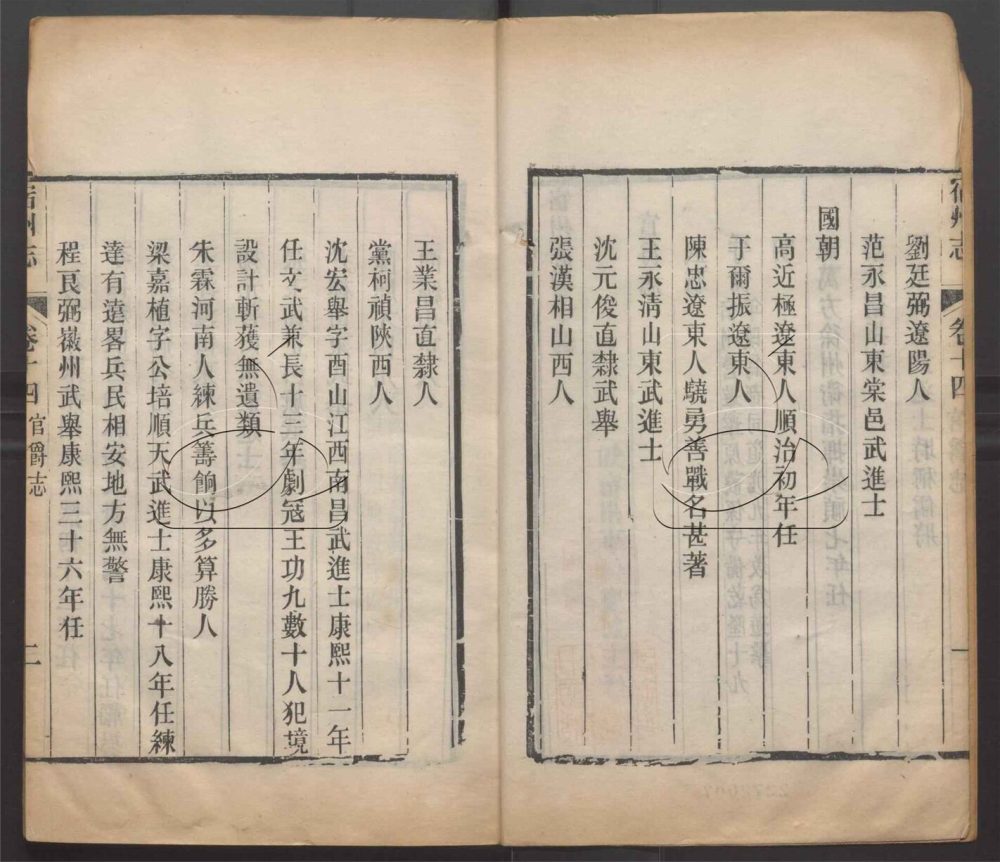 宿州志 卷十四 一
劉廷弼遼陽人
范永昌山東棠邑武進士
國朝
高近極遼東人順治初年任
于爾振遼東人
陳忠遼東人驍勇善戰名甚著
王永清山東武進士
沈元俊直隸武舉
張漢相山西人
王業昌直隸人
黨柯禎陝西人
沈宏舉字酉山江西南昌武進士康熙十一年
任文武兼長十三年劇冦王功九數十人犯境
設計斬蒦無遺類
朱霖河南人練兵籌餉以多算勝人
梁嘉植字公培順天武進士康熙十八年任練
達有遠畧兵民相安地方無警
程良弼徽州武舉康熙三十六年任
宿州志 卷十四 官爵志 二